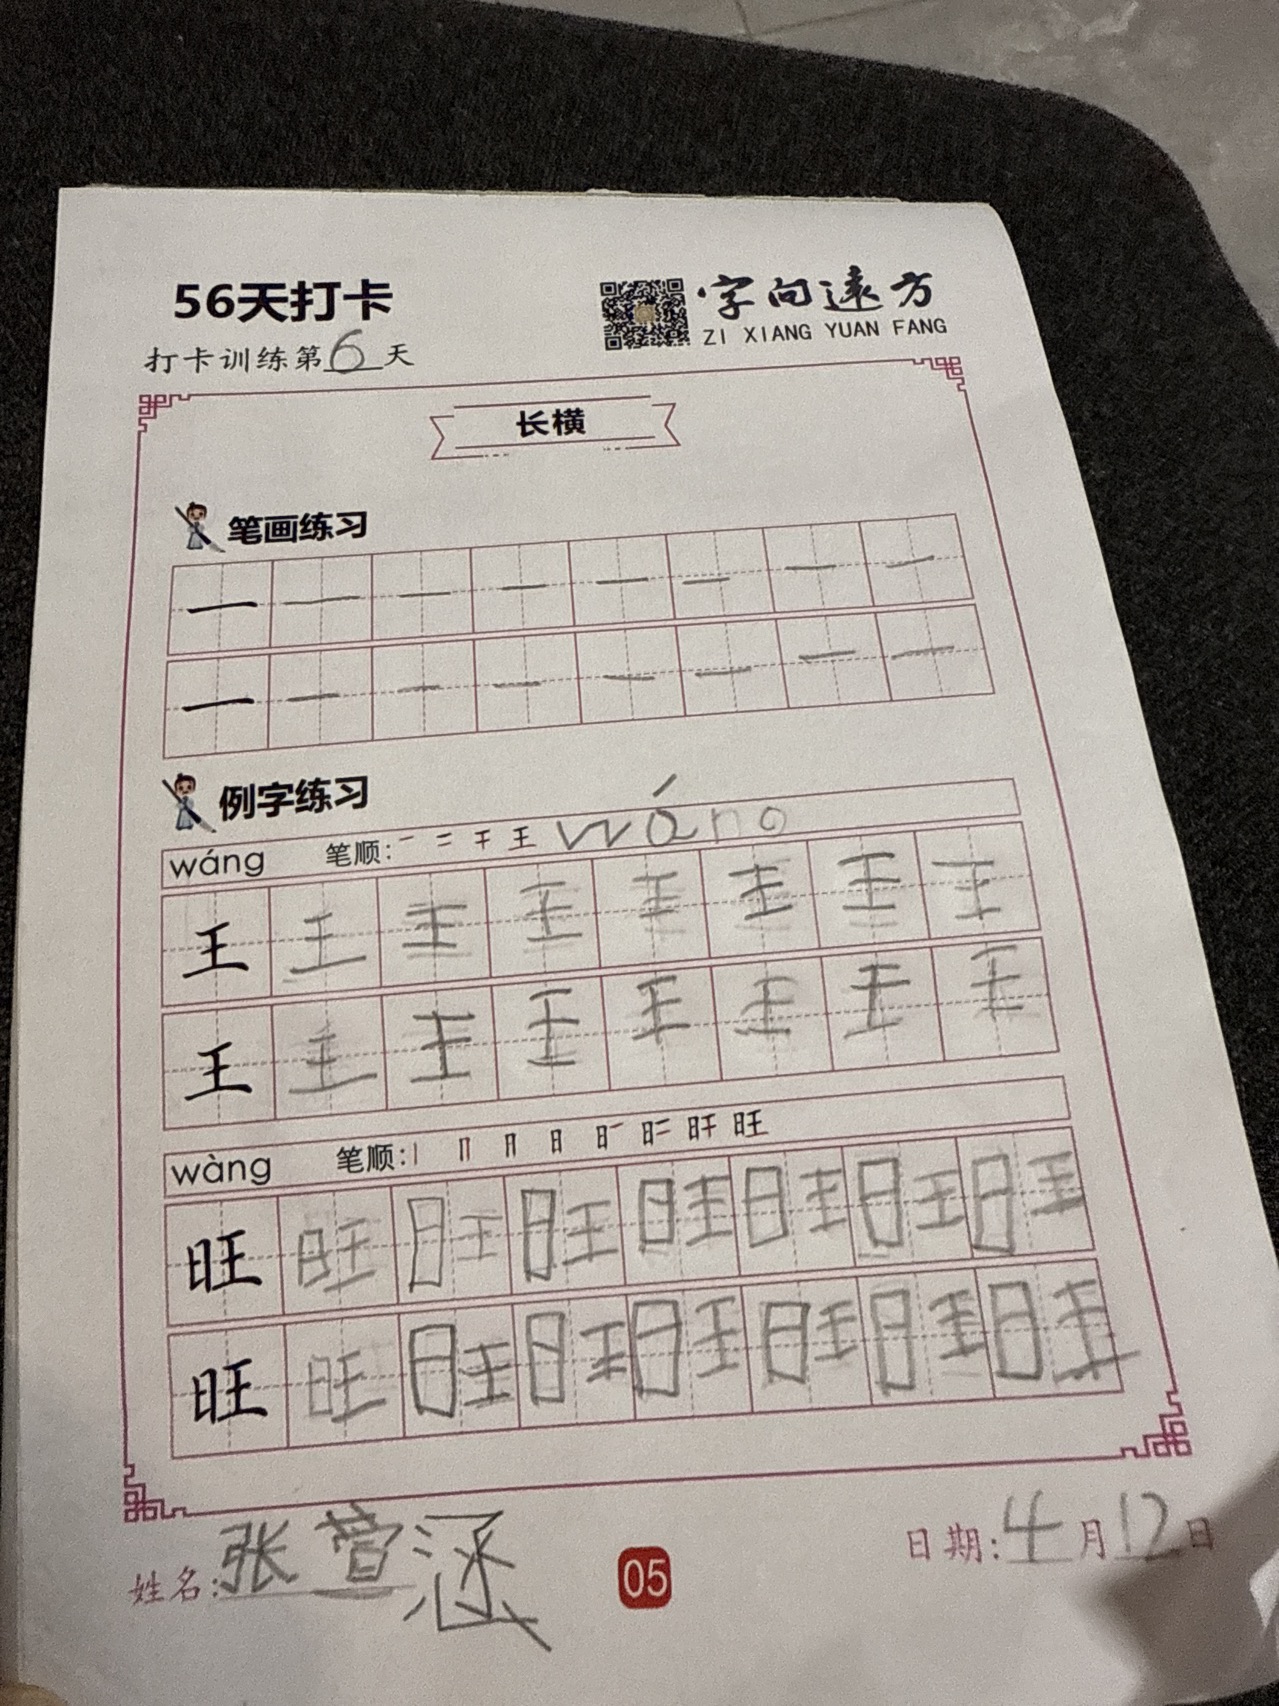 56天打卡
字向遠方
ZI XIANG YUAN FANG
打卡训练第6天
长横
笔画练习
一 一 一 一 一 一 一 一
一 一 一 一 一 一 一 一
例字练习
wáng 笔顺: 一 二 干 王 wáng
王 王 王 王 王 王 王 王
王 王 王 王 王 王 王 王
wàng 笔顺: 丨 冂 日 日 旺
旺 旺 旺 旺 旺 旺 旺 旺
旺 旺 旺 旺 旺 旺 旺 旺
姓名:张萱涵
05
日期:4月12日